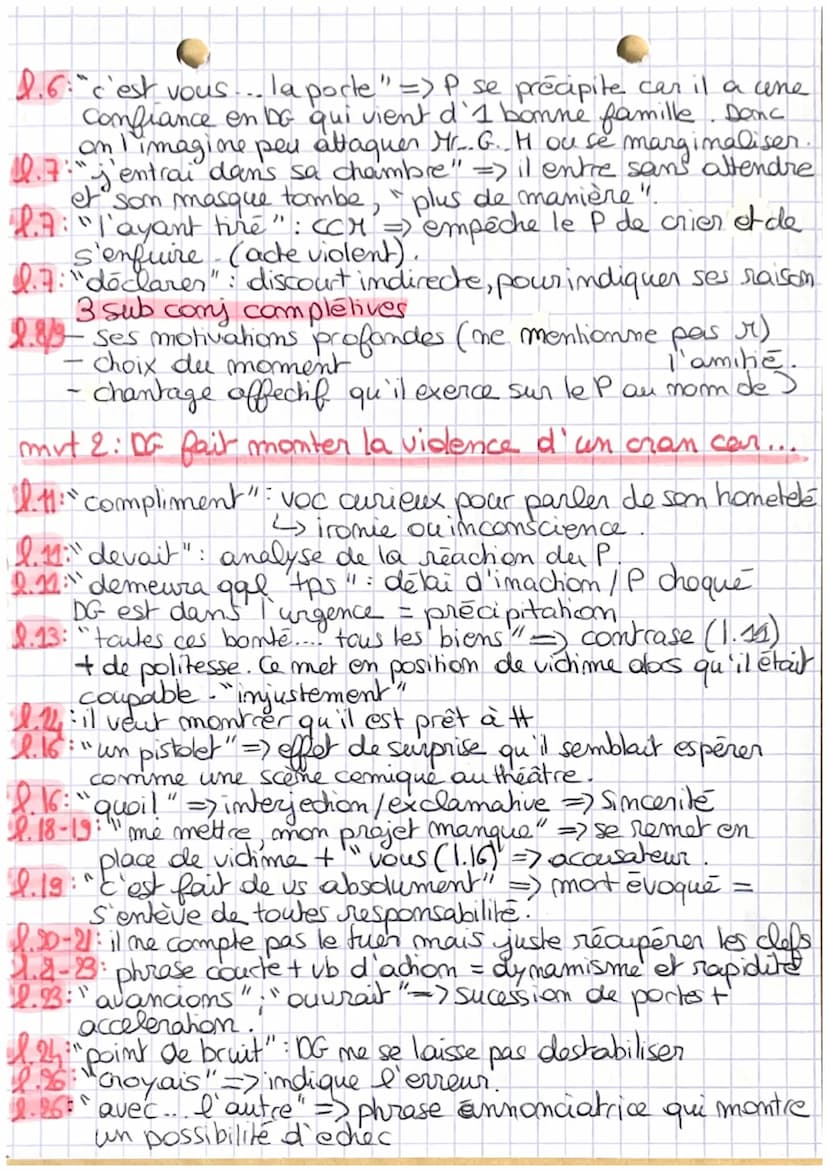 l.6: "c'est vous... la porte" => P se précipite car il a une
confiance en DG qui vient d'1 bonne famille. Donc
on l'imagine peu attaquer Mr. G. M ou se marginaliser.
l.7: "j'entrai dans sa chambre" => il entre sans attendre
et son masque tombe, "plus de manière".
l.7: "l'ayant tiré" : CCM => empêche le P de crier et de
s'enfuire. (acte violent).
l.7: "déclarer" : discourt indirecte, pour indiquer ses raison
3 sub conj complétives
l.8/9 - ses motivations profondes (ne mentionne pas M)
- choix du moment l'amitié.
- chantage affectif qu'il exerce sur le P au nom de
mvt 2 : DG fait monter la violence d'un cran car...
l.11: "compliment" : voc curieux pour parler de son hometeté
↳ ironie ou inconscience.
l.11: "devait" : analyse de la réaction du P.
l.12: "demeura qql tps" : délai d'inaction / P choqué
DG est dans l'urgence = précipitation
l.13: "toutes ces bonté.... tous les biens" => contrase (l.11)
+ de politesse. Ce met en position de victime alors qu'il était
coupable. "injustement"
l.14 : il veut montrer qu'il est prêt à tt
l.16 : "un pistolet" => effet de surprise qu'il semblait espérer
comme une scène comique au théâtre.
l.16: "quoi!" => interjection/exclamative => Sincérité
l.18-19: "me mettre, mon projet manque" => se remet en
place de victime + "vous (l.16)" => accusateur.
l.19 : "c'est fait de vs absolument" => mort évoqué =
s'enlève de toutes responsabilité.
l.20-21: il ne compte pas le tuer mais juste récupérer les clefs
l.2-23: phrase courte + vb d'action = dynamisme et rapidité
l.23: "avancions" ; "ouvrait" => sucession de portes +
acceleration.
l.24: "point de bruit" : DG ne se laisse pas destabiliser
l.26: "Croyais" => indique l'erreur.
l.26: "avec... l'autre" => phrase annonciatrice qui montre
un possibilité d'echec